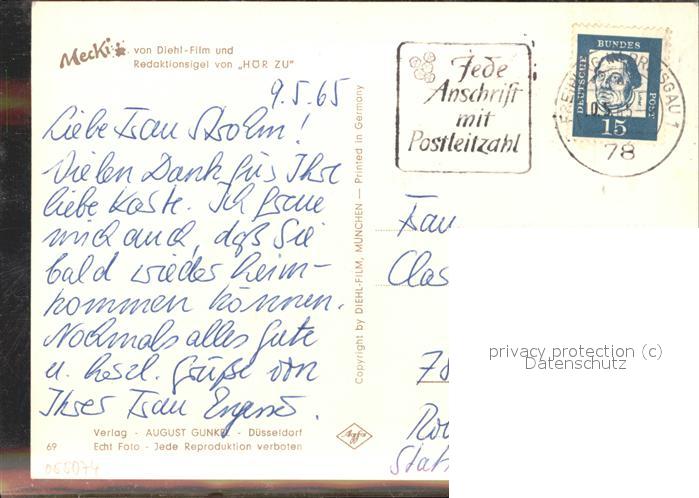 Mecki
von Diehl-Film und
Redaktionsigel von „HÖR ZU"
9.5.65
Liebe Frau Strohm!
Vielen Dank für Ihre
liebe Karte. Ich freue
mich auch, daß Sie
bald wieder heim-
kommen können.
Nochmals alles Gute
u. herzl. Grüße von
Ihrer Frau
Verlag - AUGUST GUNKEL - Düsseldorf
69 Echt Foto - Jede Reproduktion verboten
Copyright by DIEHL-FILM, MÜNCHEN — Printed in Germany
Agfa
Jede
Anschrift
mit
Postleitzahl
DEUTSCHE
BUNDES
POST
15
78
Frau
Clas
78
Stat
privacy protection (c)
Datenschutz